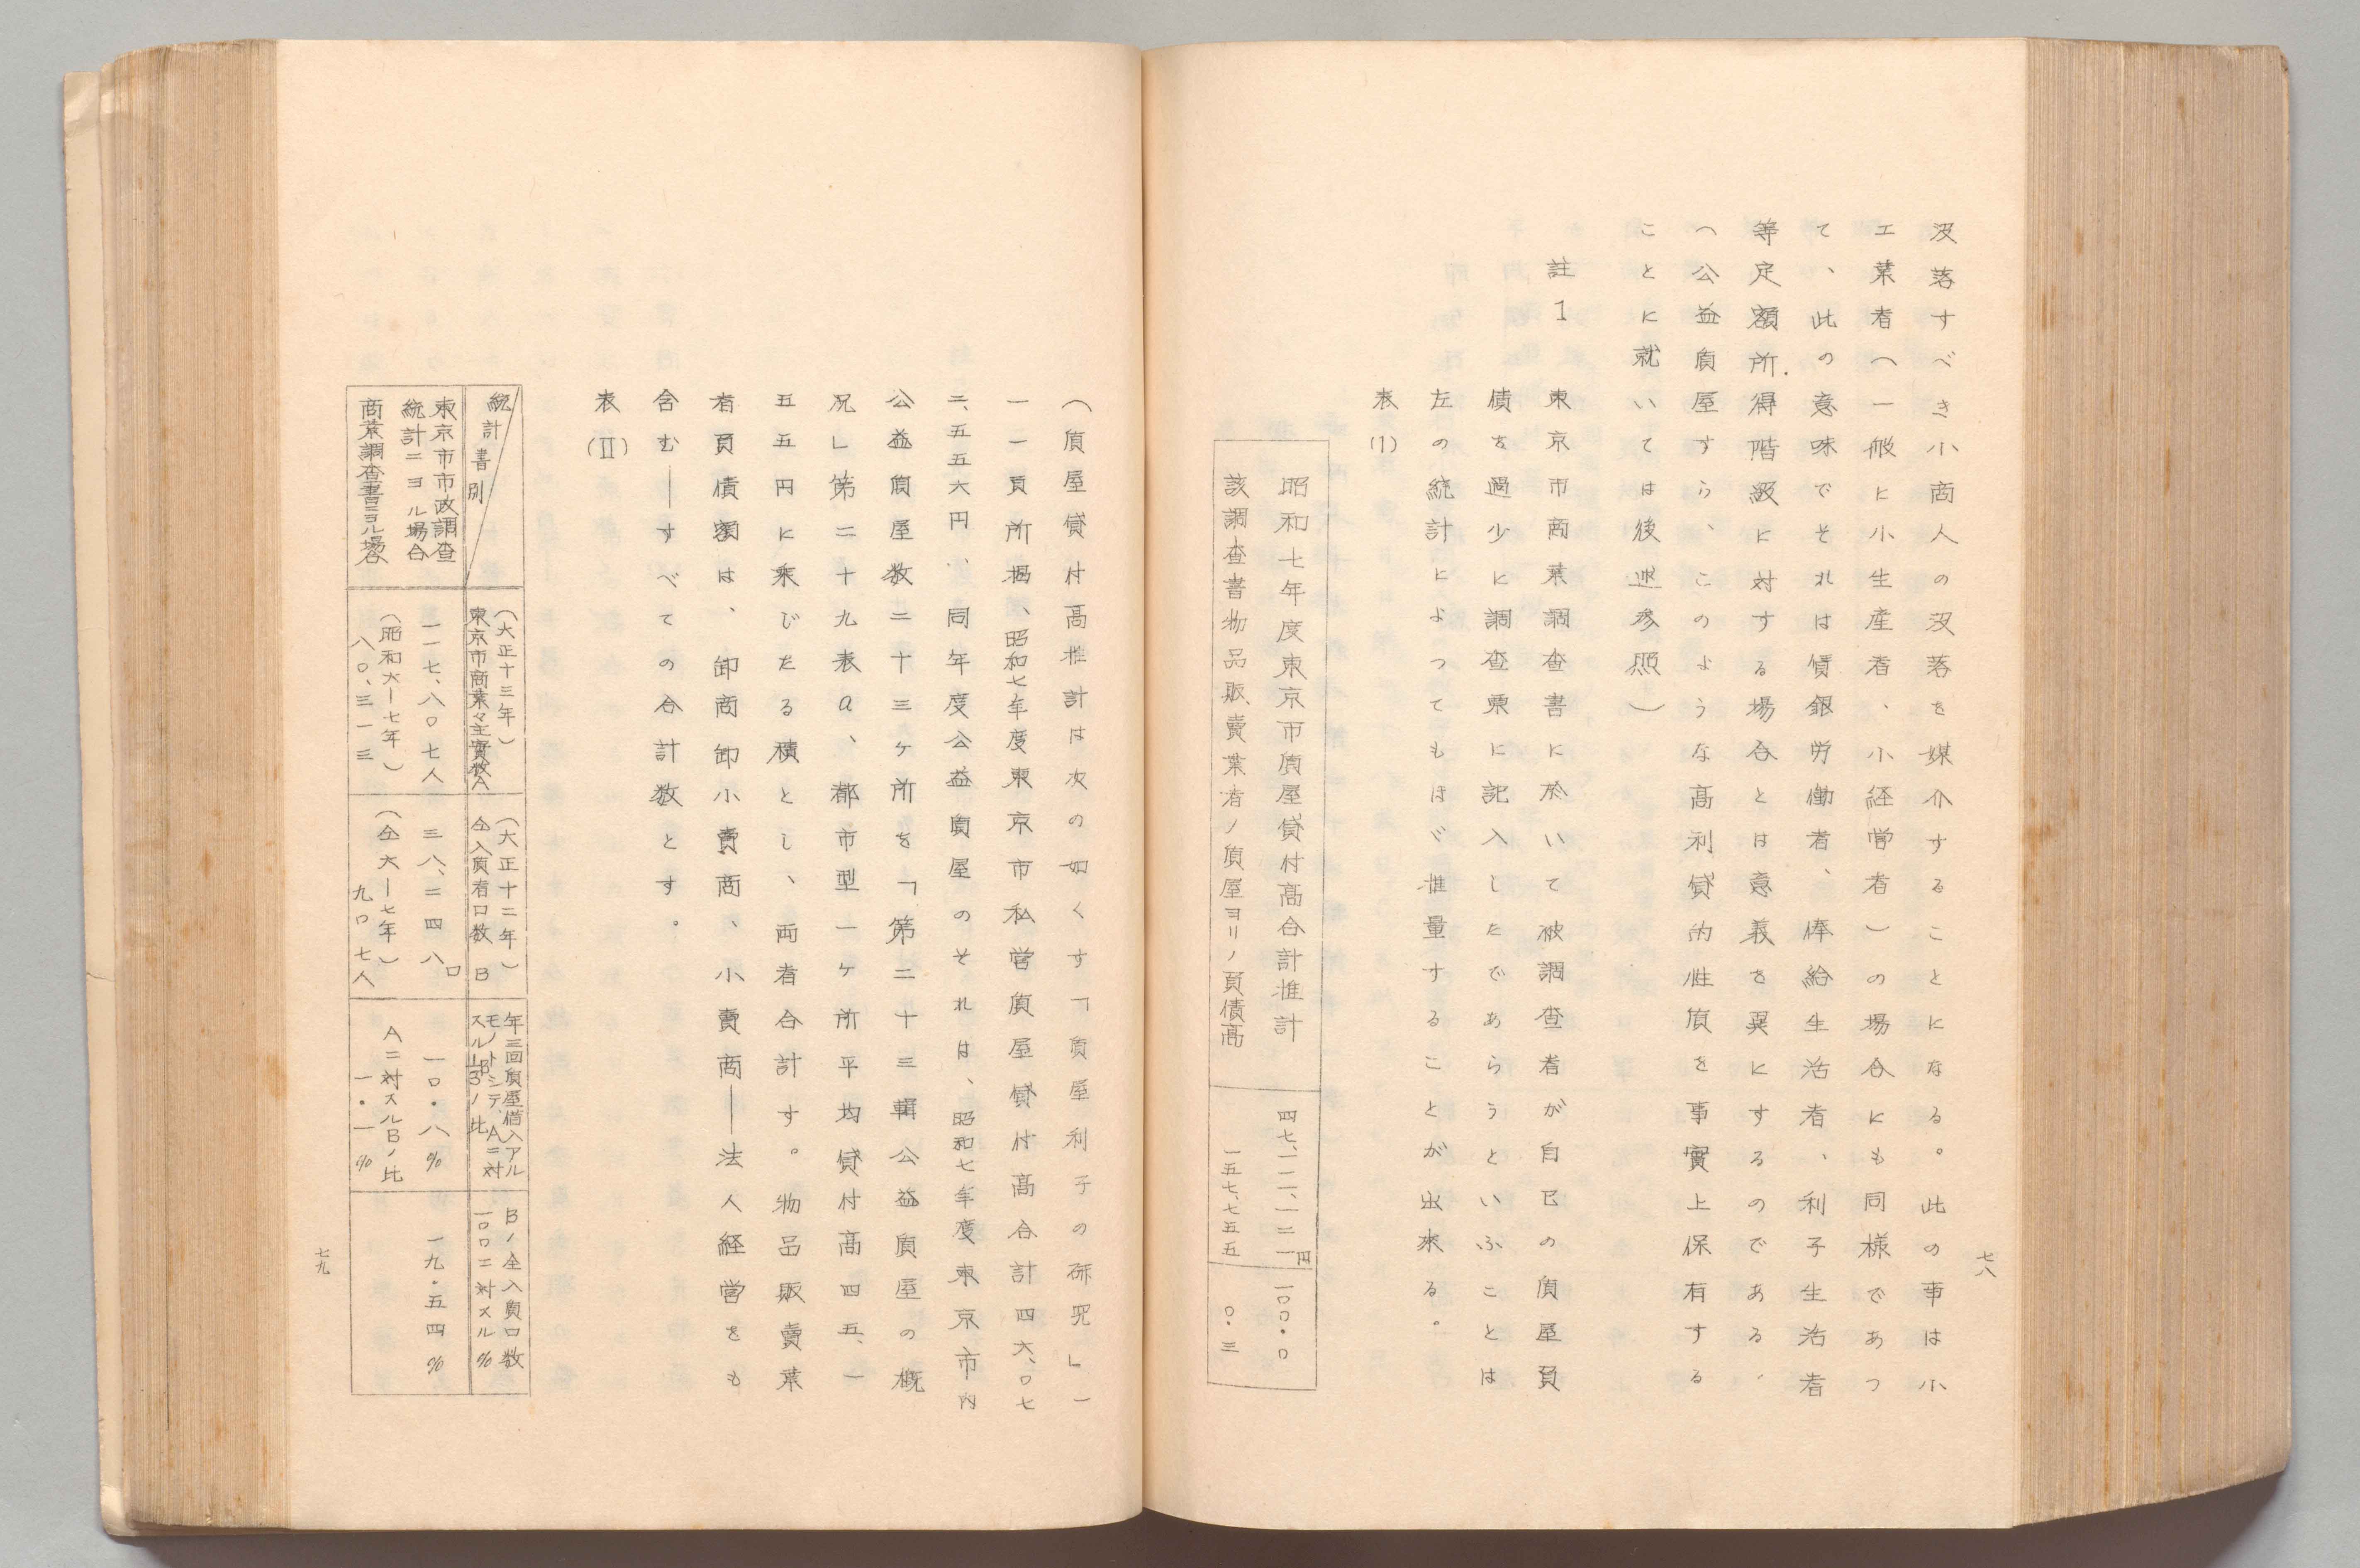 七八
没落すべき小商人の没落を媒介することになる。此の事は小
工業者（一般に小生産者、小経営者）の場合にも同様であつ
て、此の意味でそれは賃銀労働者、俸給生活者、利子生活者
等定額所得階級に対する場合とは意義を異にするのである、
（公益質屋すら、このような高利貸的性質を事實上保有する
ことに就いては後述参照）
註1
東京市商業調査書に於いて被調査者が自己の質屋負
債を過少に調査票に記入したであらうといふことは
左の統計によつてもほゞ推量することが出来る。
表(1)
昭和七年度東京市質屋貸付高合計推計 四七、一二一、一二一円 一〇〇・〇
該調査書物品販賣業者ノ質屋ヨリノ負債高 一五七、七五五 〇・三
（質屋貸付高推計は次の如くす「質屋利子の研究」一
一一頁所掲、昭和七年度東京市私営質屋貸付高合計四六、〇七
二、五五六円、同年度公益質屋のそれは、昭和七年度東京市内
公益質屋数二十三ヶ所を「第二十三輯公益質屋の概
況」第二十九表a、都市型一ヶ所平均貸付高四五、一
五五円に乗じたる積とし、両者合計す。物品販賣業
者負債額は、卸商卸小賣商、小賣商――法人経営をも
含む――すべての合計数とす。
表(Ⅱ)
統計書別
（大正十三年）
東京市商業々主實数A
（大正十二年）
全入質者口数 B
年三回質屋借入アル
モノトシテ、Aニ対
スル⅓Bノ比
Bノ全入質口数
一〇〇ニ対スル%
東京市市政調査
統計ニヨル場合
一一七、八〇七人
三八、二四八口
一〇・八%
一九・五四%
商業調査書ニヨル場合
（昭和六―七年）
八〇、三一三
（仝六―七年）
九〇七人
Aニ対スルBノ比
一・一%
七九